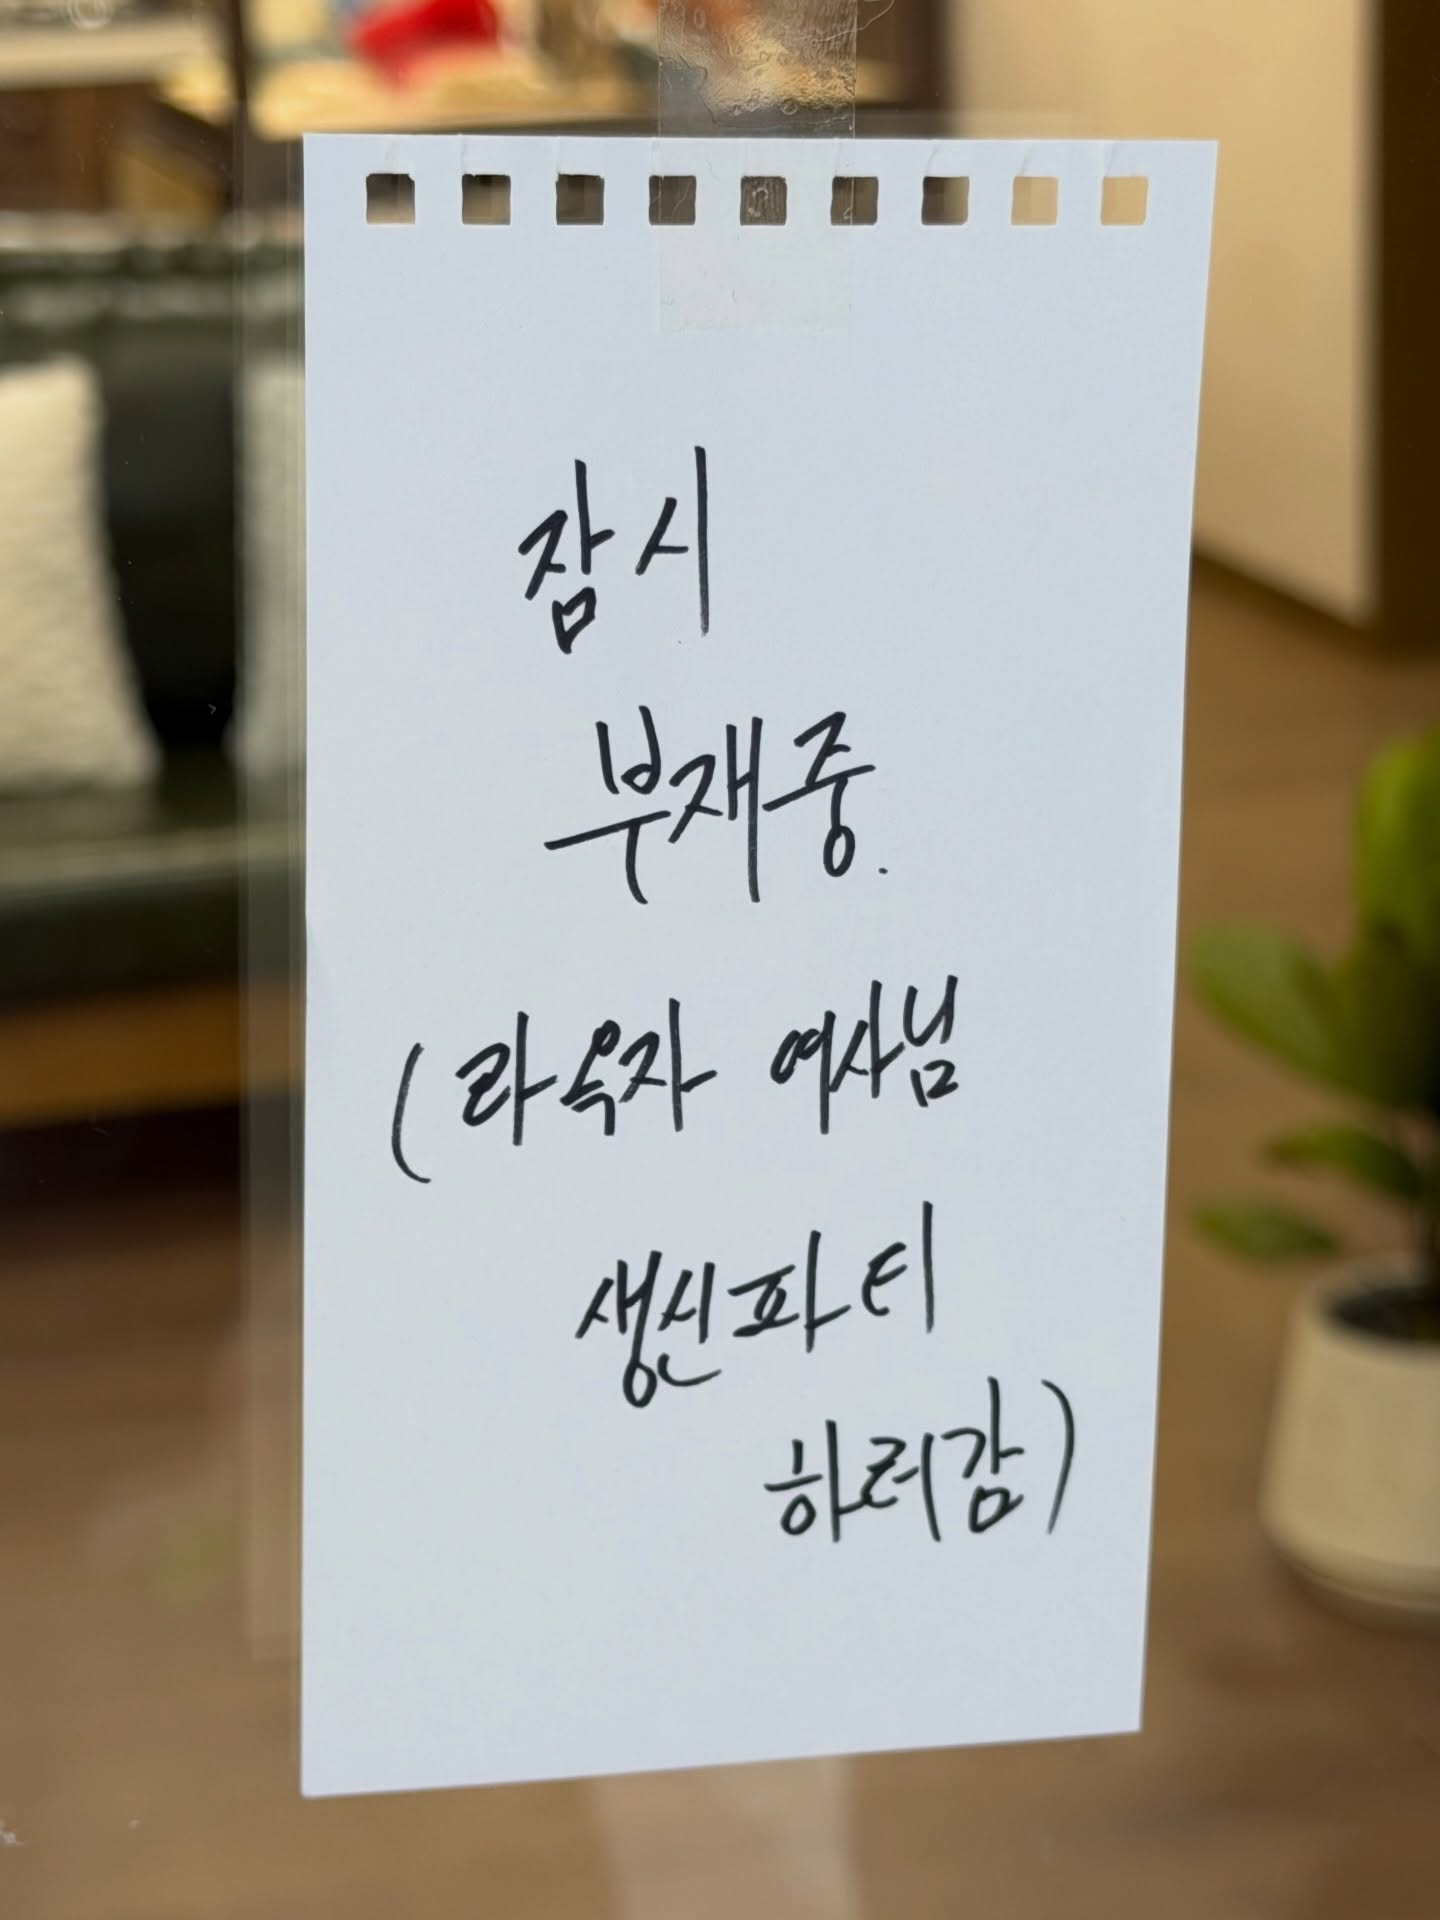 잠시
부재중.
(라옥자 여사님
생신파티
하러감)